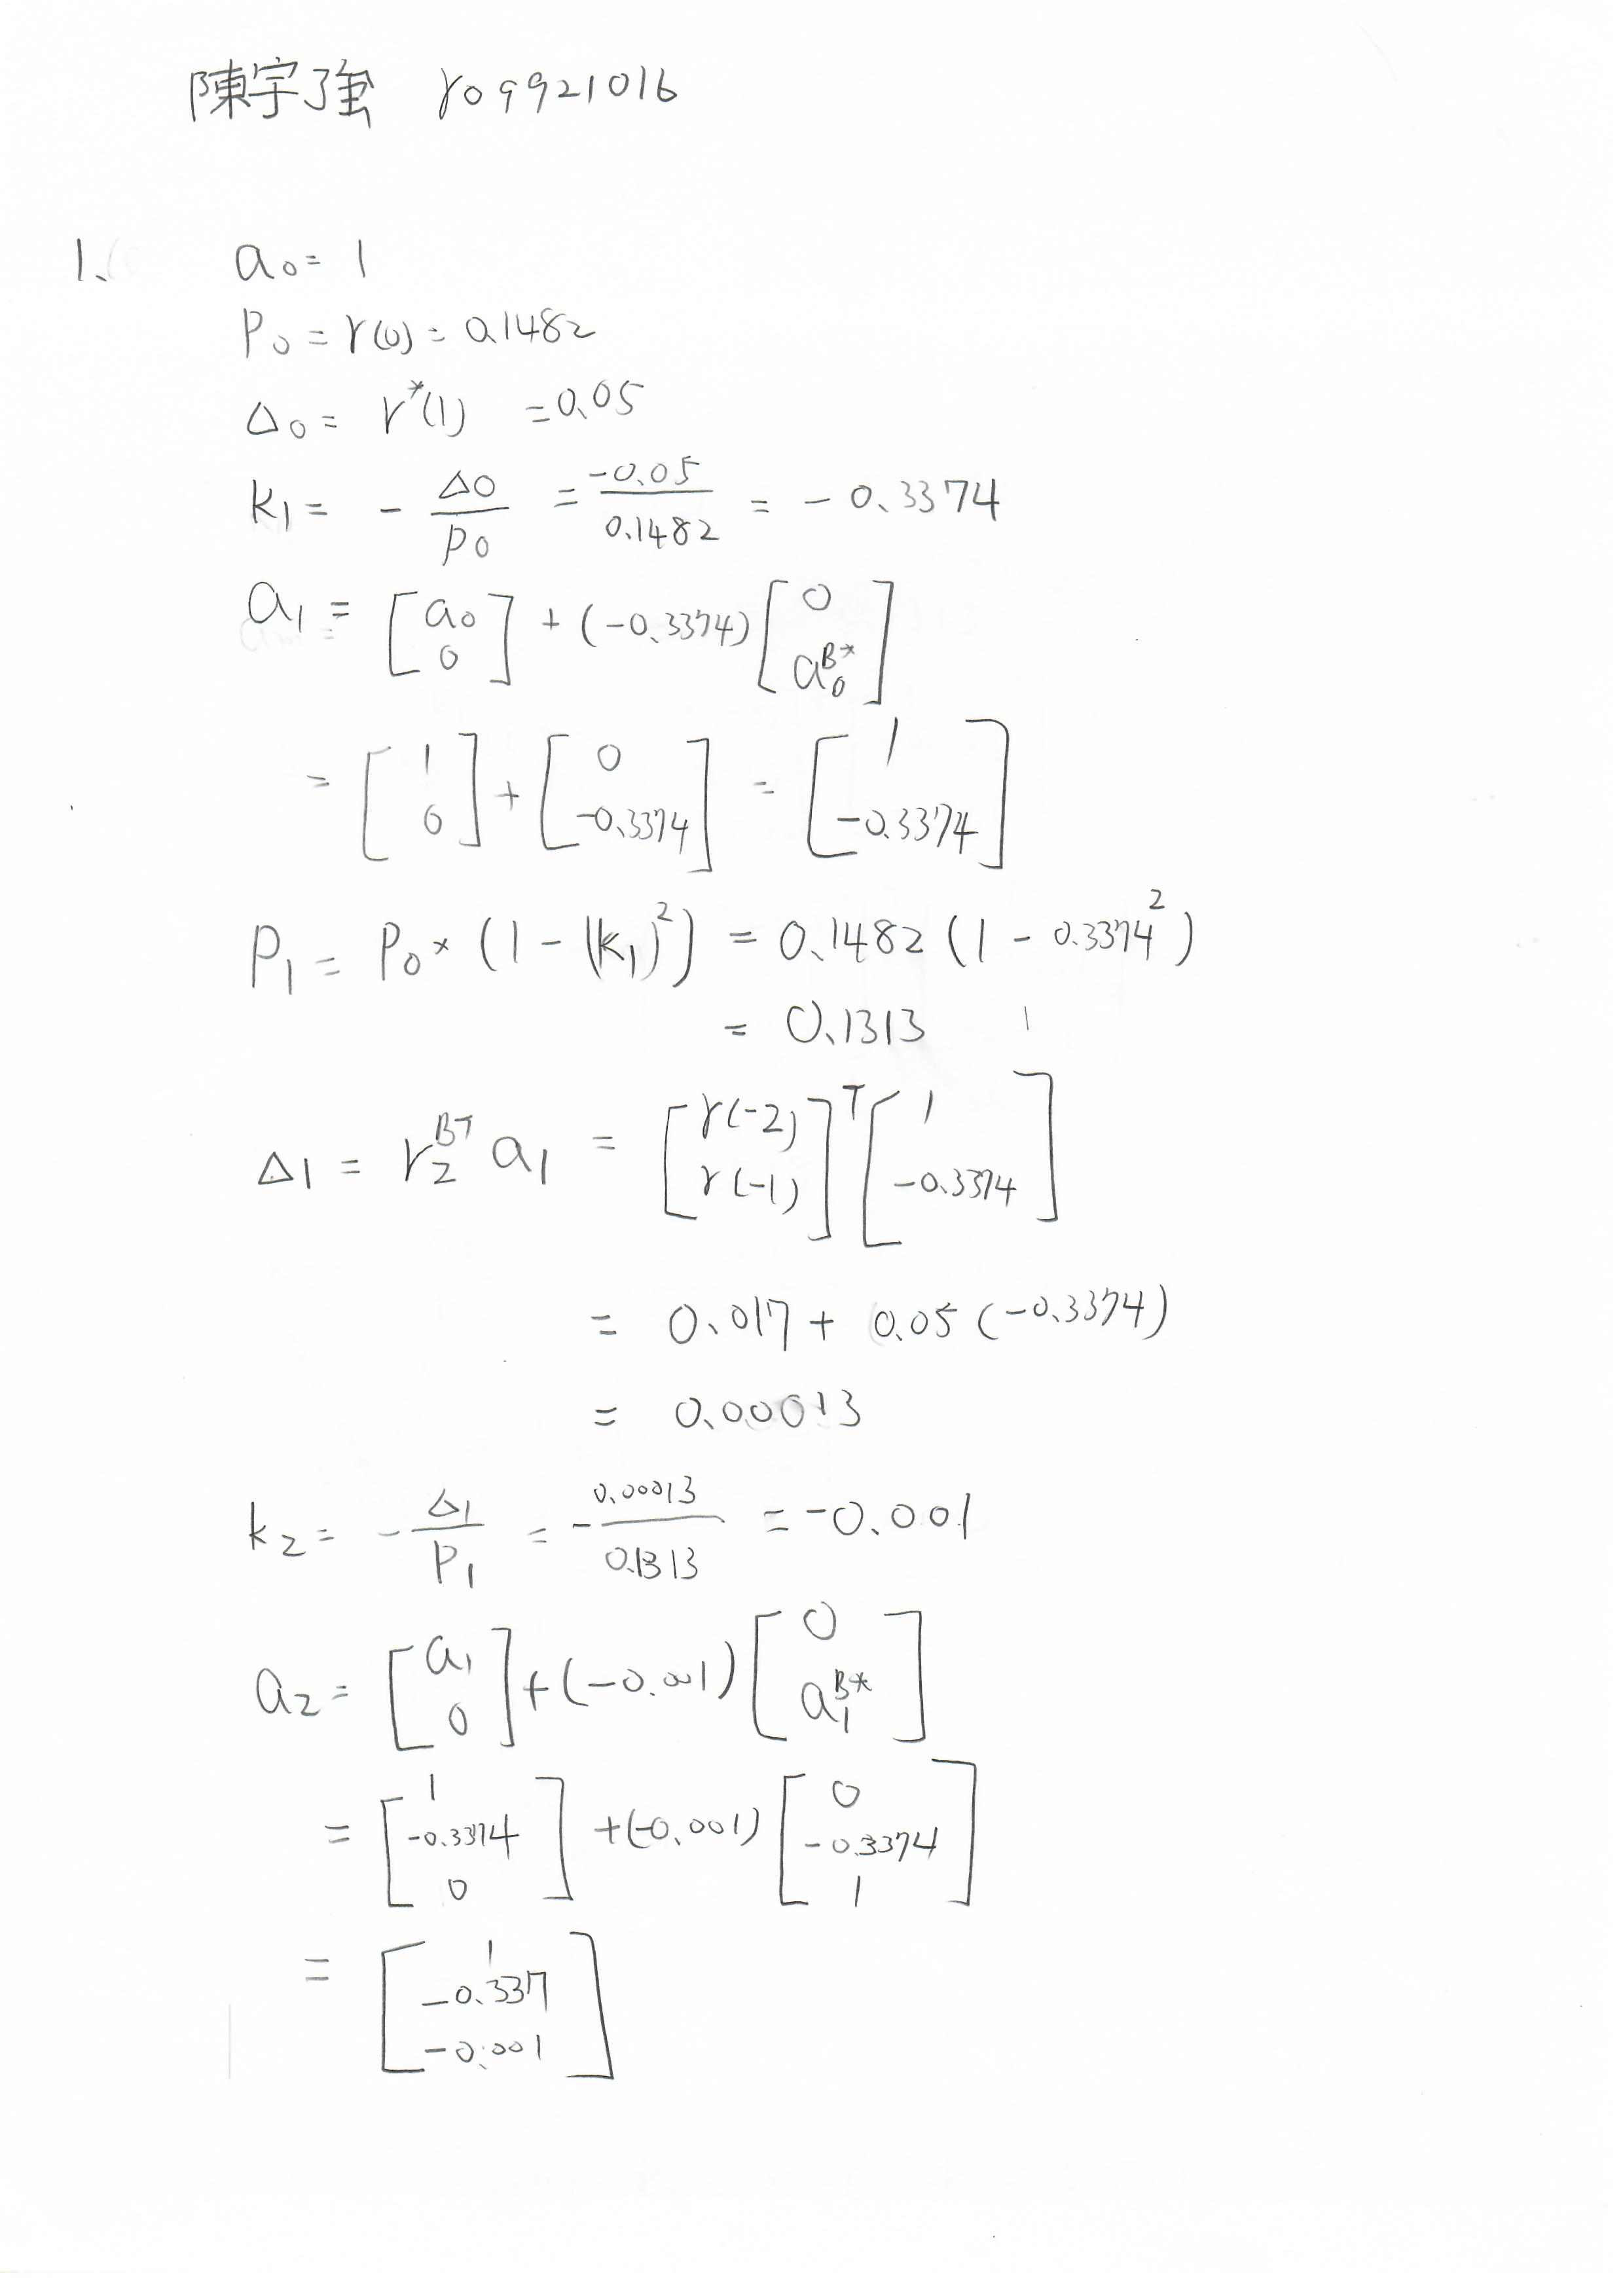 陳宇強 r09921016
1、 a₀ = 1
P₀ = r(0) = 0.1482
Δ₀ = r*(1) = 0.05
k₁ = - Δ0/P0 = -0.05/0.1482 = -0.3374
a₁ = [a₀ 0] + (-0.3374) [0 a₀ᴮ*]
= [1 0] + [0 -0.3374] = [1 -0.3374]
P₁ = P₀ × (1 - |k₁|²) = 0.1482 (1 - 0.3374²)
= 0.1313
Δ1 = r₂ᴮᵀ a₁ = [r(-2) r(-1)]ᵀ [1 -0.3374]
= 0.017 + 0.05 (-0.3374)
= 0.00013
k₂ = - Δ1/P₁ = - 0.00013/0.1313 = -0.001
a₂ = [a₁ 0] + (-0.001) [0 a₁ᴮ*]
= [1 -0.3374 0] + (-0.001) [0 -0.3374 1]
= [1 -0.337 -0.001]